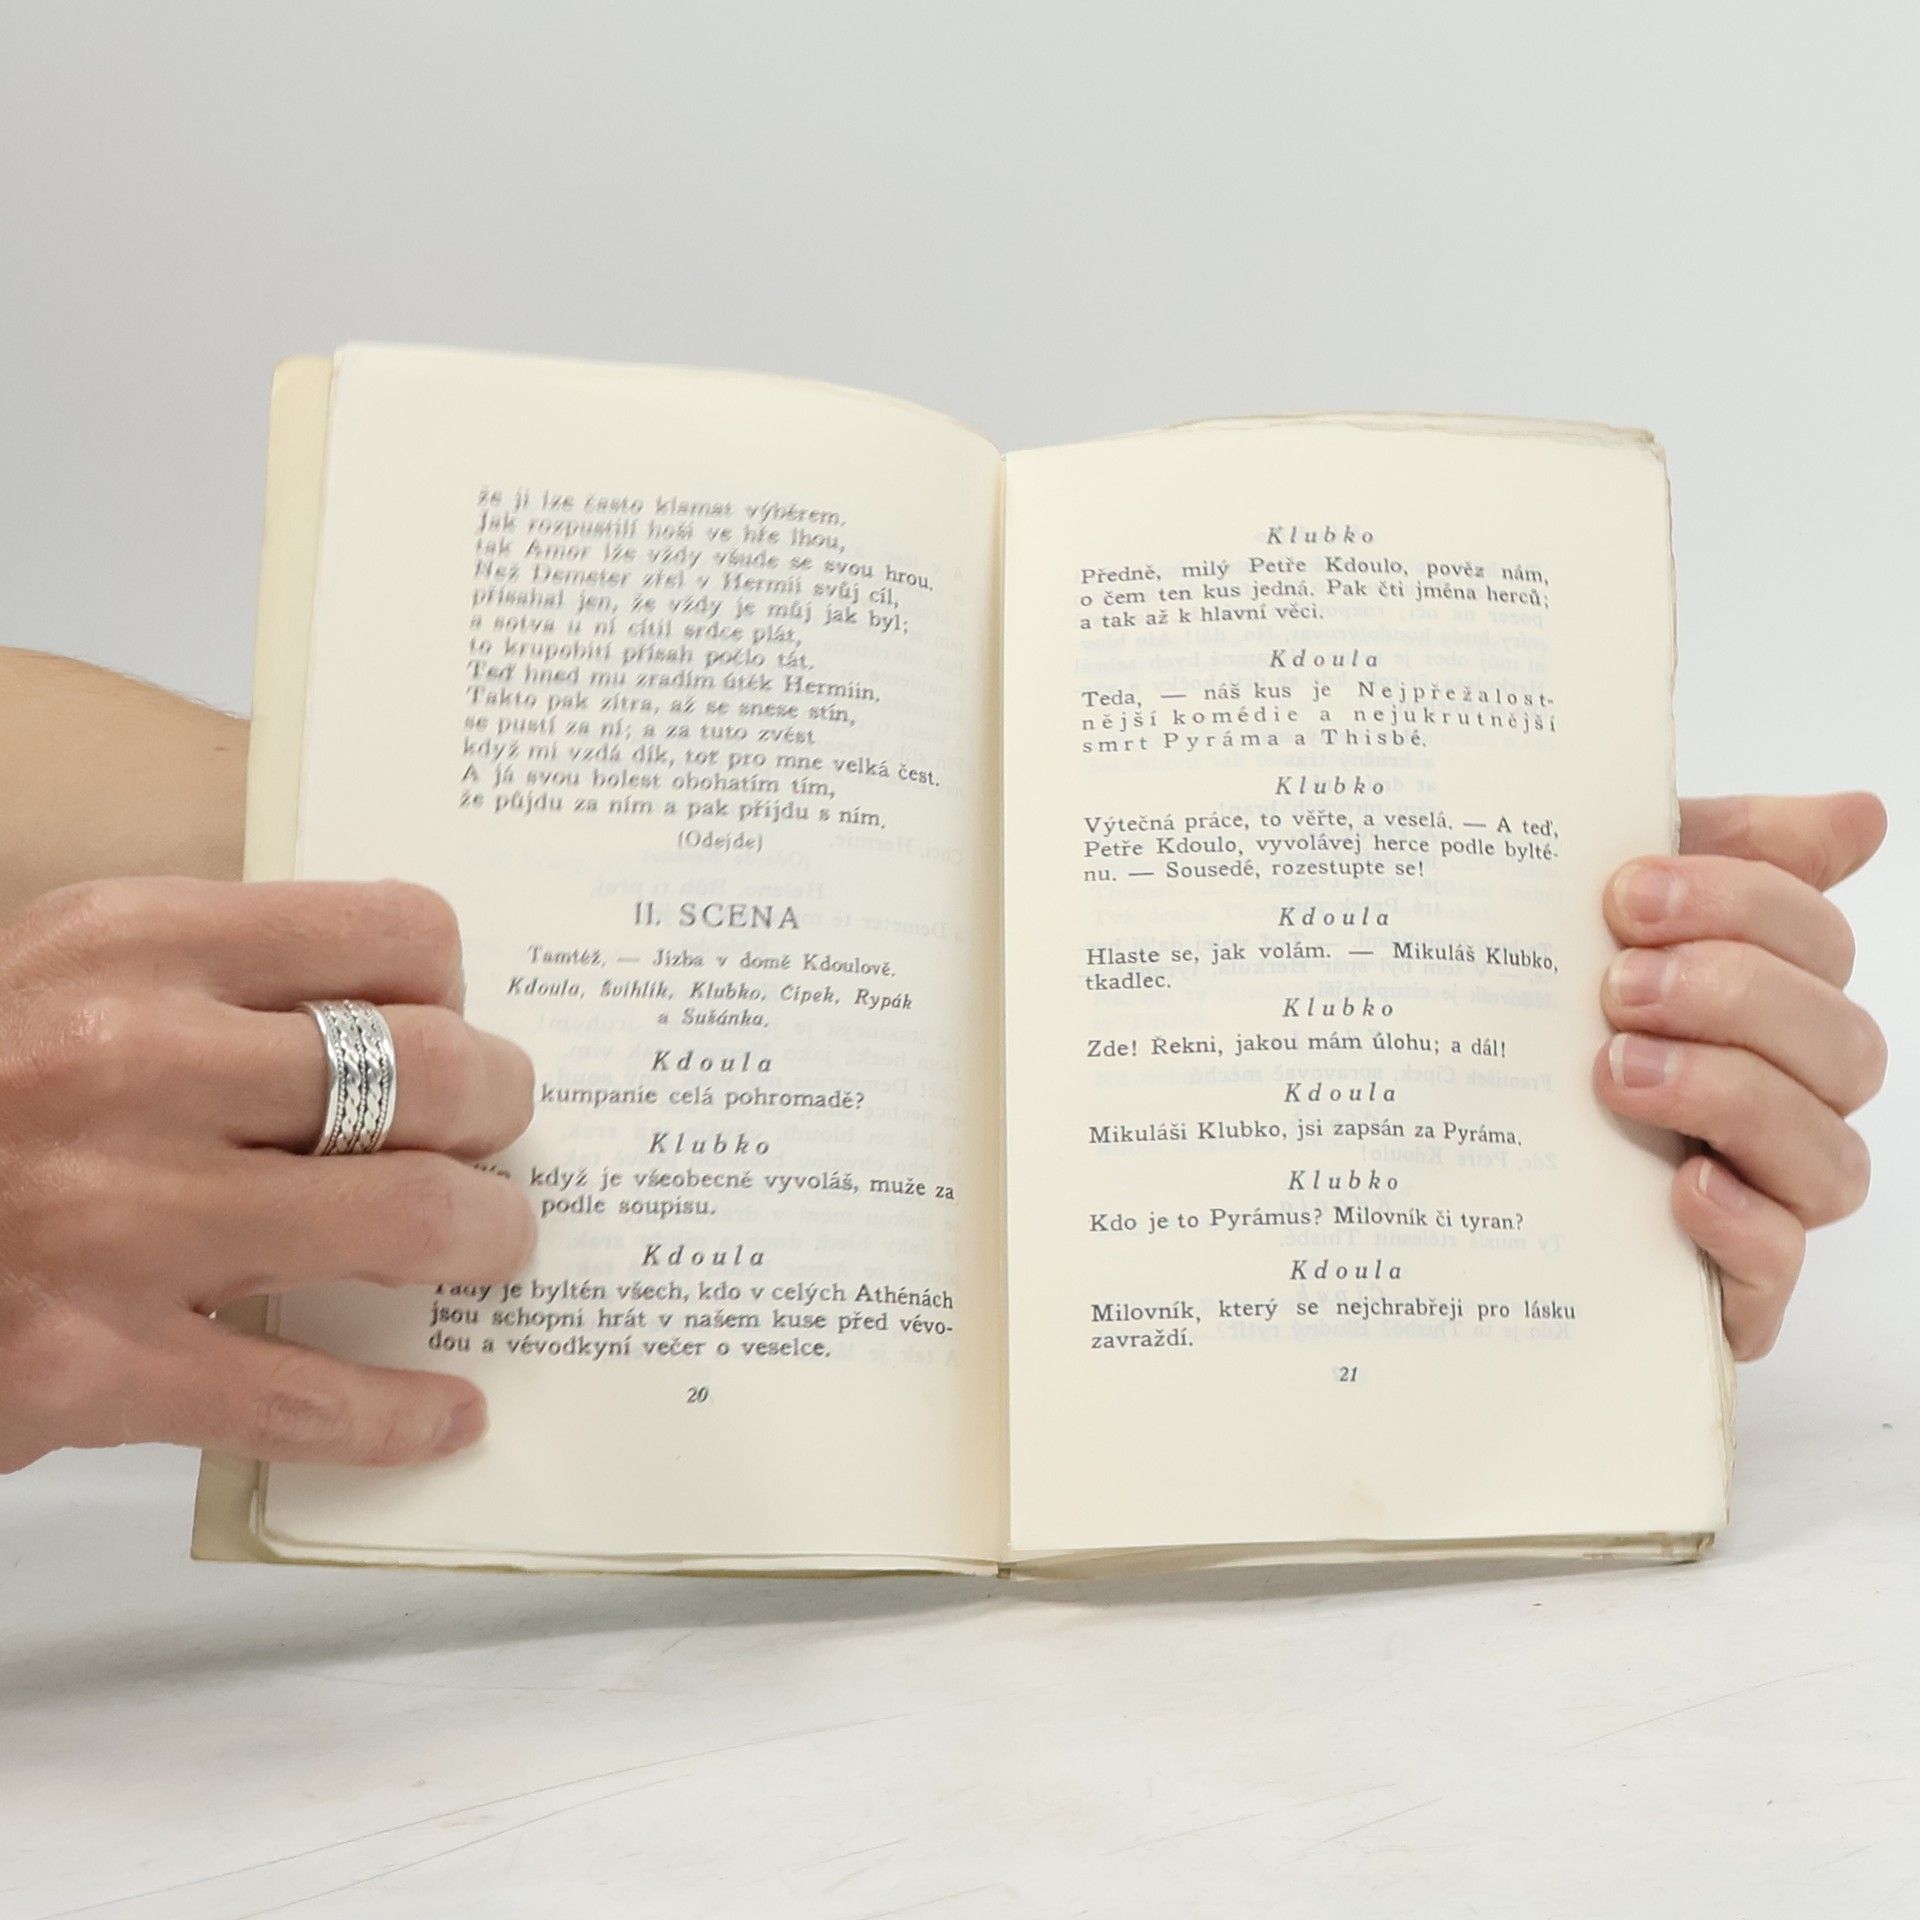 že jí lze často klamat výběrem.
Jak rozpustilí hoši ve hře lhou,
tak Amor lže vždy všude se svou hrou.
Než Demeter zřel v Hermii svůj cíl,
přísahal jen, že vždy je můj jak byl;
a sotva u ní cítil srdce plát,
to krupobití přísah počlo tát.
Teď hned mu zradím útěk Hermiin.
Takto pak zítra, až se snese stín,
se pustí za ní; a za tuto zvěst
když mi vzdá dík, toť pro mne velká čest.
A já svou bolest obohatím tím,
že půjdu za ním a pak přijdu s ním.
(Odejde)
II. SCENA
Tamtéž. — Jizba v domě Kdoulově.
Kdoula, Švihlík, Klubko, Cípek, Rypák
a Sušánka.
Kdoula
kumpanie celá pohromadě?
Klubko
když je všeobecně vyvoláš, muže za
podle soupisu.
Kdoula
Tady je byltén všech, kdo v celých Athénách
jsou schopni hrát v našem kuse před vévo-
dou a vévodkyní večer o veselce.
20
Klubko
Předně, milý Petře Kdoulo, pověz nám,
o čem ten kus jedná. Pak čti jména herců;
a tak až k hlavní věci.
Kdoula
Teda, — náš kus je Nejpřežalost-
nější komédie a nejukrutnější
smrt Pyráma a Thisbé.
Klubko
Výtečná práce, to věřte, a veselá. — A teď,
Petře Kdoulo, vyvolávej herce podle bylté-
nu. — Sousedé, rozestupte se!
Kdoula
Hlaste se, jak volám. — Mikuláš Klubko,
tkadlec.
Klubko
Zde! Řekni, jakou mám úlohu; a dál!
Kdoula
Mikuláši Klubko, jsi zapsán za Pyráma.
Klubko
Kdo je to Pyrámus? Milovník či tyran?
Kdoula
Milovník, který se nejchrabřeji pro lásku
zavraždí.
21